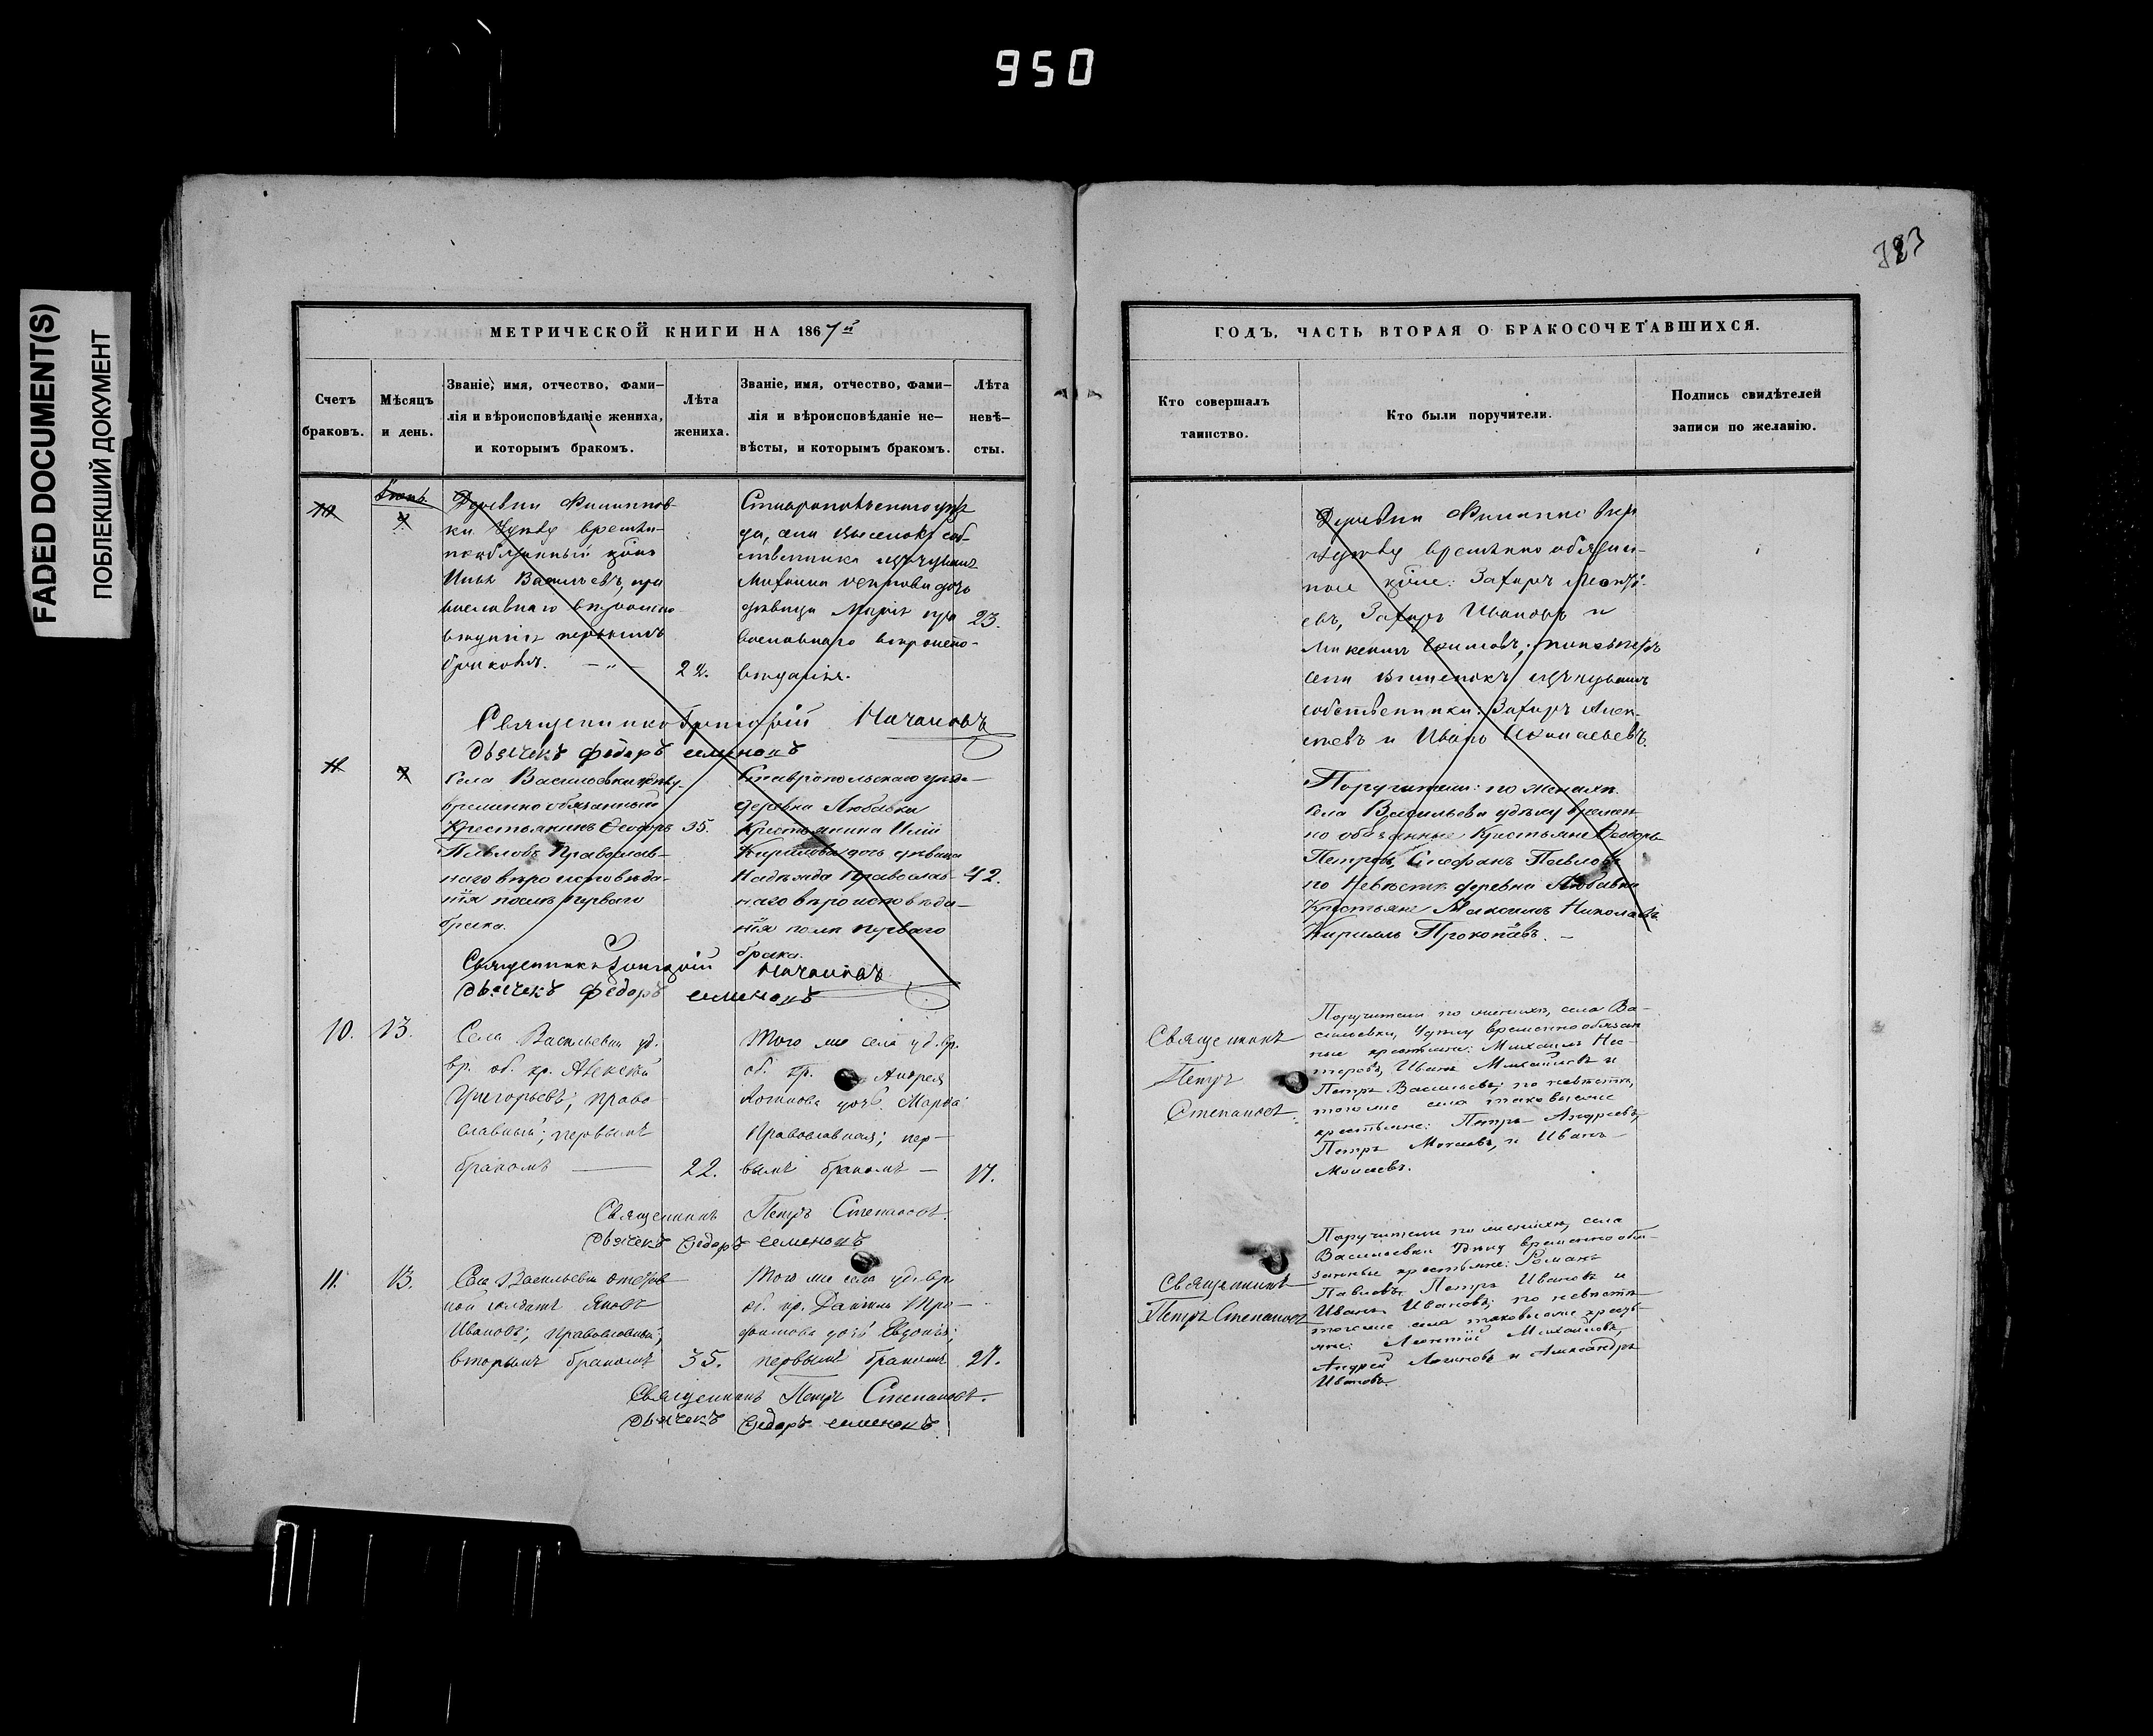 950
FADED DOCUMENT(S)
ПОБЛЕКШИЙ ДОКУМЕНТ
МЕТРИЧЕСКОЙ КНИГИ НА 1867й
Счетъ браковъ.
Мѣсяцъ и день.
Званіе, имя, отчество, фами-
лія и вѣроисповѣданіе жениха,
и которымъ бракомъ.
Лѣта жениха.
Званіе, имя, отчество, фами-
лія и вѣроисповѣданіе не-
вѣсты, и которымъ бракомъ.
Лѣта
невѣ-
сты.
10
Деревни Филиппов-
ки Удѣлу времѣн-
Васильевъ, пра
вославнаго вѣроиспо-
вѣданія первымъ
бракомъ. 22.
да, села
ственника
дочь
дѣвица 23.
вославнаго вѣроиспо-
вѣданія.
Священникъ Григорій
дьячекъ федоръ семеновъ
11
Села Васильевки удѣлу
временно обязанный
Крестьянинъ Ѳеодоръ 35.
Павловъ Православ-
наго вѣроисповѣда-
нія послѣ перваго
брака.
Ставропольскаго уѣзда
деревни Любавки
Крестьянина Иліи
Кирилова дочь дѣвица
Надежда Православ- 42.
наго вѣроисповѣда-
нія послѣ перваго
брака.
Священникъ Григорій
дьячекъ федоръ семеновъ
10. 13.
Села Васильевки уд.
вр. об. кр. Алексѣй
Григорьевъ; право-
славный; первымъ
бракомъ 22.
Того же села уд. вр.
об. кр. Андрея
Логинова дочь Марѳа
Православная; пер-
вымъ бракомъ 17.
Священникъ Петръ Степановъ.
дьячекъ Ѳедоръ семеновъ
11. 13.
Села Васильевки
солдатъ Яковъ
Ивановъ; православный;
вторымъ бракомъ 35.
Того же села уд. вр.
об. кр. Даніила Тро-
фимова дочь Евдокія;
первымъ бракомъ 27.
Священникъ Петръ Степановъ.
дьячекъ Ѳедоръ семеновъ
ГОДЪ, ЧАСТЬ ВТОРАЯ О БРАКОСОЧЕТАВШИХСЯ.
Кто совершалъ
таинство.
Кто были поручители.
Подпись свидѣтелей
записи по желанію.
Деревни
Удѣлу временно обязан-
ные Захаръ
евъ, Захаръ Ивановъ и
села
собственники: Захаръ Алек-
сѣевъ и Иванъ
Поручители: по женихѣ
Села Васильевки удѣлу времен-
но обязанные Крестьяне Ѳеодоръ
Петровъ, Стефанъ Павловъ
по Невѣстѣ деревни Любавки
Крестьяне Максимъ Николаевъ
Кириллъ Прокопіевъ.
Священникъ
Петръ
Степановъ.
Поручители по женихѣ, села Ва-
сильевки, Удѣлу временно обязан
ные крестьяне: Михаилъ Нес-
теровъ, Иванъ Михайловъ и
Петръ Васильевъ; по невѣстѣ,
того же села таковые же
крестьяне: Петръ Андреевъ,
Петръ Моисеевъ, и Иванъ
Моисеевъ.
Священникъ
Петръ Степановъ
Поручители по женихѣ, села
Васильевки Удѣлу временно обя-
занные крестьяне: Романъ
Павловъ, Петръ Ивановъ и
Иванъ Ивановъ; по невѣстѣ
того же села таковые же кресть-
яне: Леонтій Михайловъ,
Андрей Логиновъ и Александръ
Ивановъ.